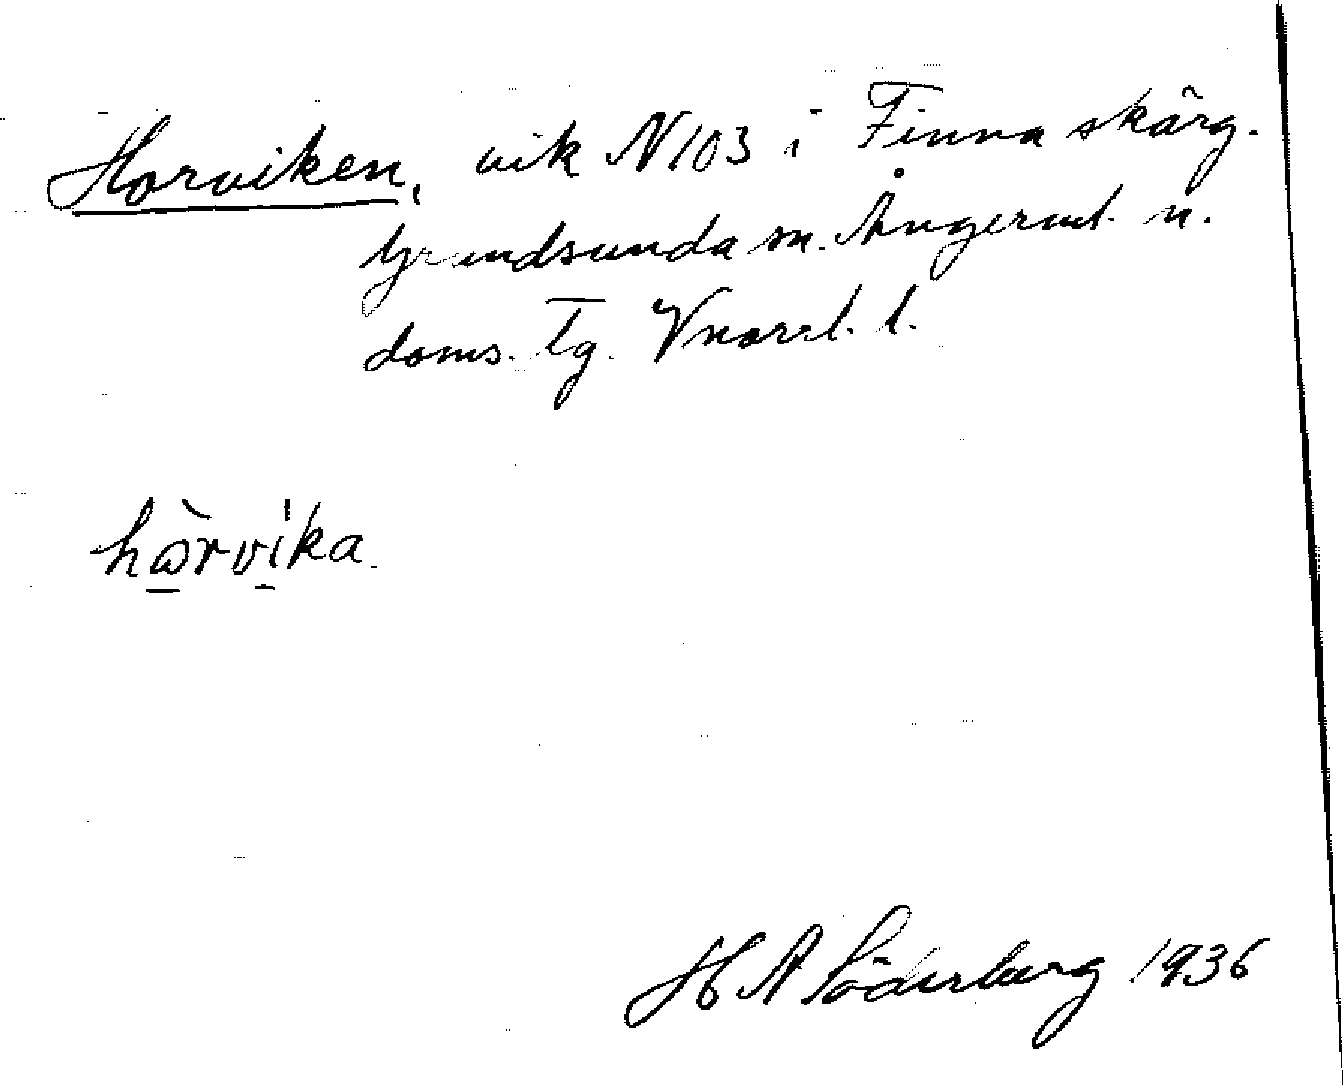 Horviken, vik N103 i Finna skärg.
Grundsunda sn. Ångerml. n.
doms. Tg. Vnorrl. l.
hòrvika
H A Söderberg 1936